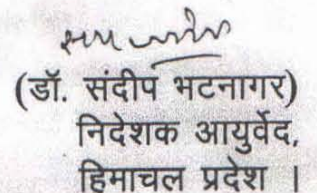 (डॉ. संदीप भटनागर)
निदेशक आयुर्वेद,
हिमाचल प्रदेश ।